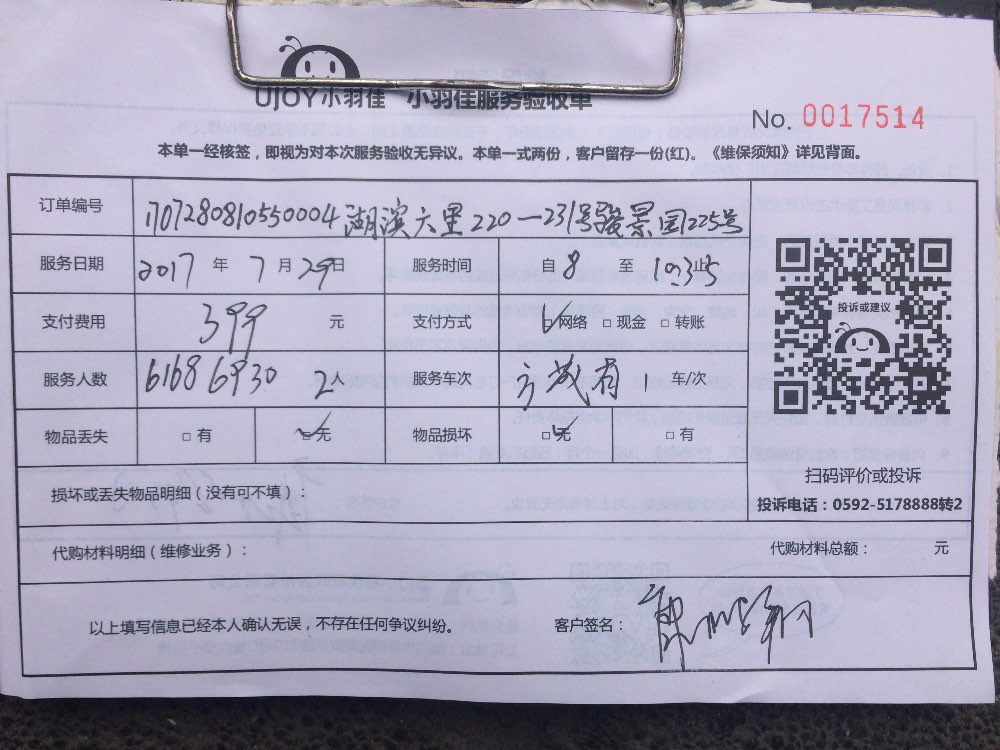 UJOY小羽佳 小羽佳服务验收单
No. 0017514
本单一经核签，即视为对本次服务验收无异议。本单一式两份，客户留存一份(红)。《维保须知》详见背面。
订单编号 1707280810550004 湖滨六里220—231号骏景园225号
服务日期 2017 年 7 月 29 日 服务时间 自 8 至 10:35 止
支付费用 399 元 支付方式 ☑网络 □现金 □转账
投诉或建议
服务人数 6168 6930 2人 服务车次 1 车/次
物品丢失 □有 ☑无 物品损坏 ☑无 □有
扫码评价或投诉
损坏或丢失物品明细（没有可不填）：
投诉电话：0592-5178888转2
代购材料明细（维修业务）： 代购材料总额： 元
以上填写信息已经本人确认无误，不存在任何争议纠纷。 客户签名：